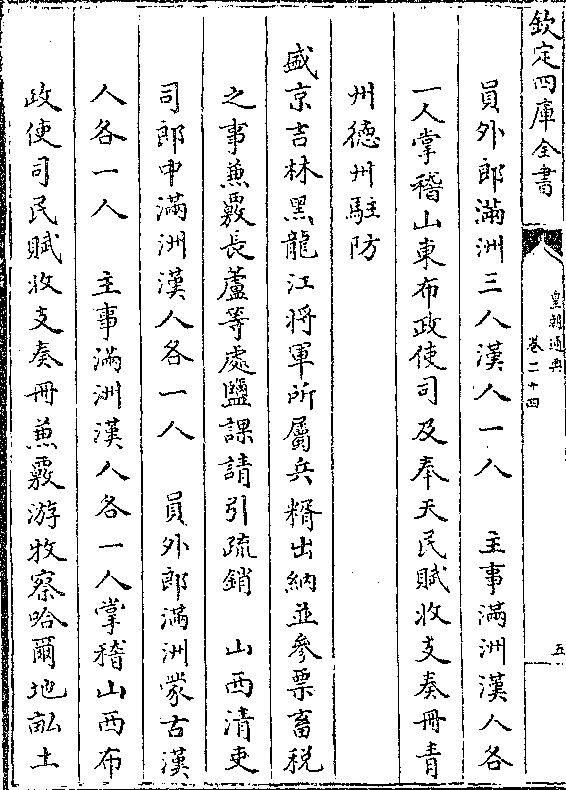 欽定四庫全書
皇朝通典
卷二十四
五
員外郎滿洲三人漢人一人　主事滿洲漢人各
一人掌稽山東布政使司及奉天民賦收支奏冊青
州德州駐防
盛京吉林黑龍江將軍所屬兵糈出納並參票畜稅
之事兼覈長蘆等處鹽課請引疏銷　山西清吏
司郎中滿洲漢人各一人　員外郎滿洲蒙古漢
人各一人　主事滿洲漢人各一人掌稽山西布
政使司民賦收支奏冊兼覈游牧察哈爾地畝土